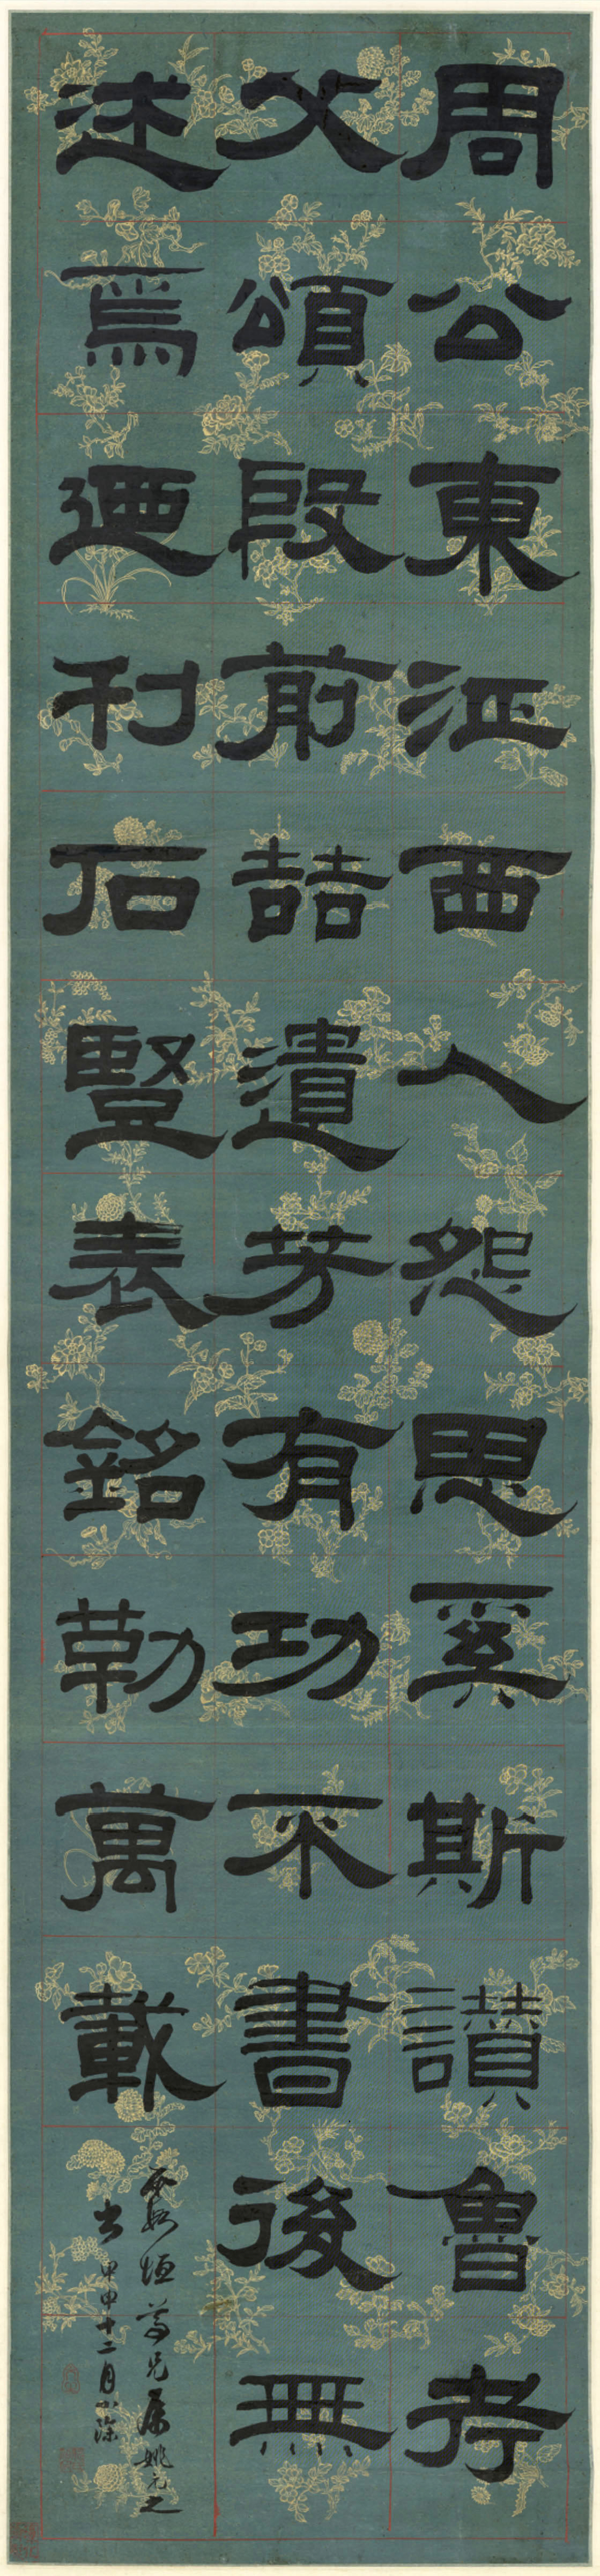 周公東征西人怨思奚斯讚魯考
父頌殷前喆遺芳有功不書後無
述焉迺刊石豎表銘勒萬載
霞垣尊兄屬姚元之
書甲申十二月小除